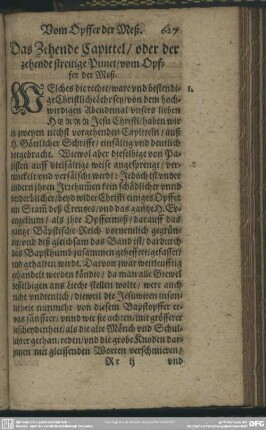 Vom Opffer der Meß. 627
Das Zehende Capittel/ oder der
zehende streitige Punct/ vom Opf-
fer der Meß.
WElches die rechte/ ware vnd bestendi-
ge Christliche lehr sey/ von dem hoch-
wirdigen Abendmal vnsers lieben
HERRN Jesu Christi/ haben wir
in zweyen nechst vorgehenden Capitteln/ auß
H. Göttlicher Schrifft/ einfältig vnd deutlich
Wiewol aber dieselbige von Pa-
pisten auff vielfältige weise angefochten/ ver-
vnd verfälscht werdt: Jedoch ist vnder
andern ihren Irrthumen kein schädlicher vnnd
verderblicher/ dey wider Christi einiges Opffer
am Stam deß Creutzes/ vnd das gantze H. Ev-
angelium/ als ihre Opffermeß/ darauff das
gantze Bäpstische Reich vornemlich gegrün-
det/ vnd deß gleichsam das Band ist/ dardurch
das Bapsthumb zusammen geheftet gefasset
vnd gehalten wirdt. Darvon zwar weitleufftig
gehandelt werden köndte/ da man alle Grewel
desselbigen ans Liecht stellen wolte/ were auch
nicht vndienlich/ dieweil die Jesuwiten inson-
derheit nunmehr von diesem Bapstopffer et-
was sänffter/ vnnd wie sie achten/ mit grösserer
bescheidenheit/ als die alte Mönch vnd Schul-
lehrer gethan/ reden/ vnd die grobe Knoden dar-
innen mit gleissenden Worten verschmieren/
Rr ij vnd